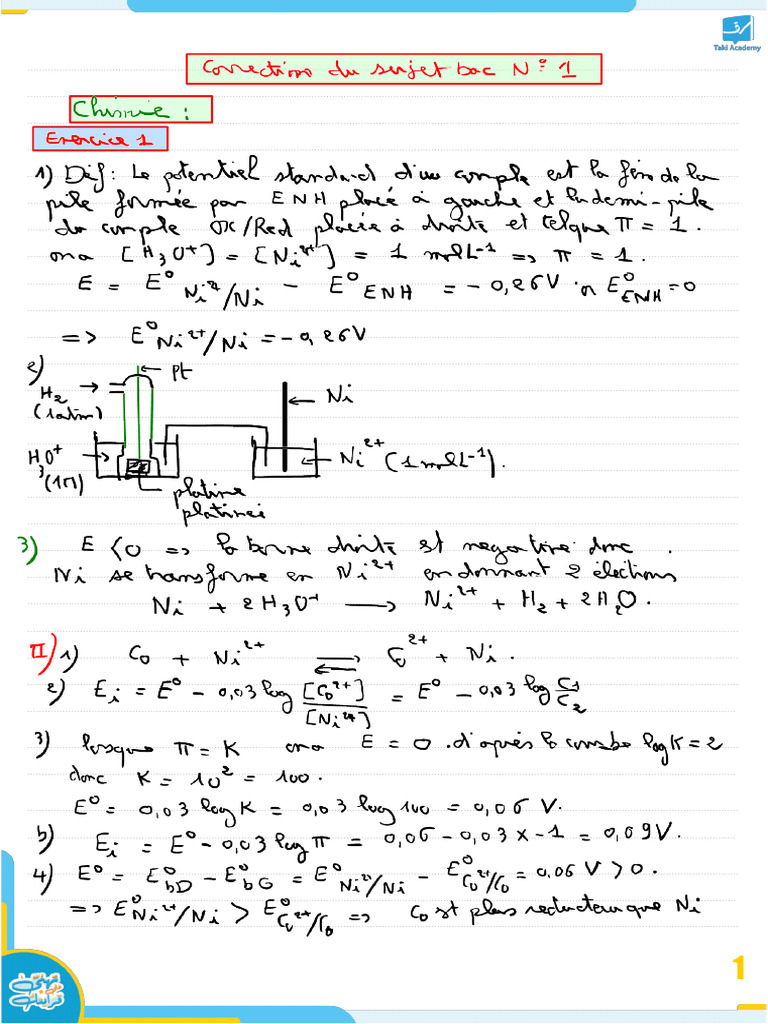 Taki Academy
Correction du sujet bac N° 1
Chimie :
Exercice 1
1) Déf : Le potentiel standard d'un couple est la fém de la
pile formée par ENH placé à gauche et la demi-pile
du couple ox/Red placée à droite et telque π = 1.
on a [H3O+] = [Ni2+] = 1 mol L-1 => π = 1.
E = E° Ni2+/Ni - E° ENH = -0,26V or E°ENH = 0
=> E°Ni2+/Ni = -0,26V
2)
Pt
H2
(1atm)
Ni
H3O+
(1M)
Ni2+ (1 mol L-1).
platine
platinei
3) E < 0 => la borne droite est negative donc
Ni se transforme en Ni2+ en donnant 2 élections
Ni + 2H3O+ → Ni2+ + H2 + 2H2O.
II) 1) Co + Ni2+ ⇌ Co2+ + Ni.
2) Ei = E° - 0,03 log [Co2+]/[Ni2+] = E° - 0,03 log C1/C2
3) lorsque π = K on a E = 0. d'après la courbe log K = 2
donc K = 10² = 100.
E° = 0,03 log K = 0,03 log 100 = 0,06 V.
b) Ei = E° - 0,03 log π = 0,06 - 0,03 x -1 = 0,09V.
4) E° = E°bD - E°bG = E°Ni2+/Ni - E°Co2+/Co = 0,06 V > 0.
=> E°Ni2+/Ni > E°Co2+/Co => Co est plus reducteur que Ni
1